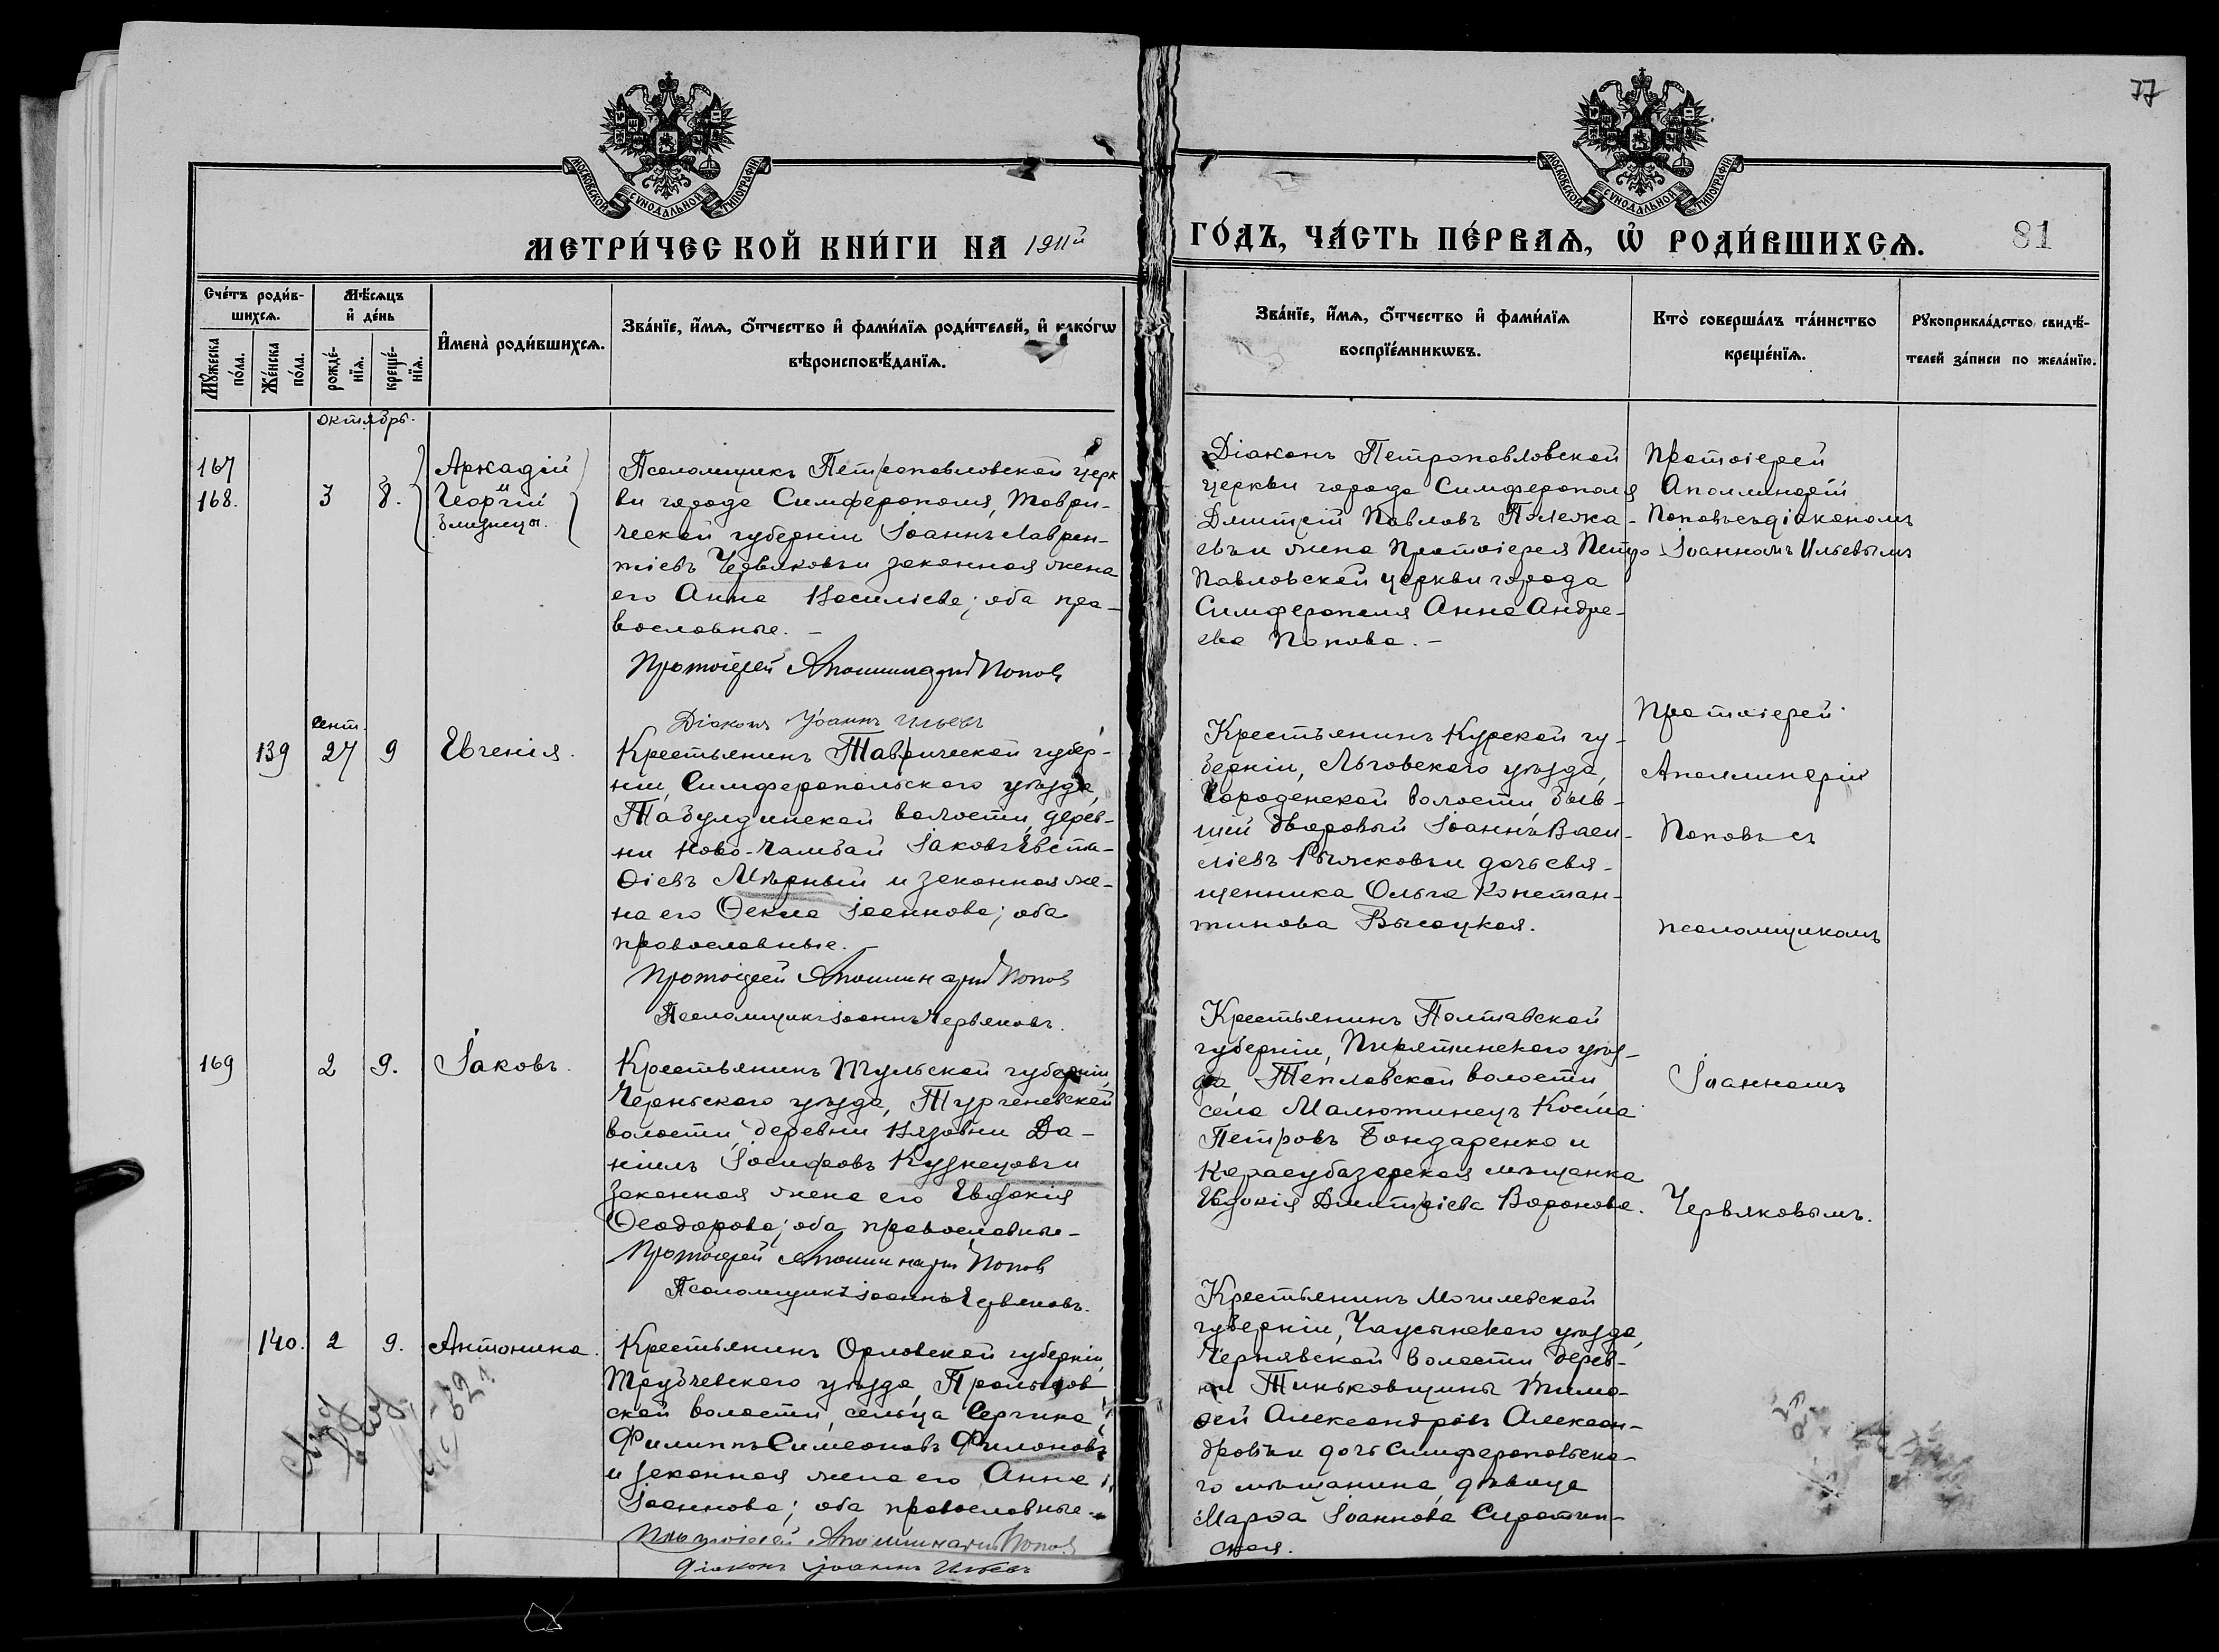 77
МОСКОВСКОЙ СѴНОДАЛЬНОЙ ТИПОГРАФІИ
МОСКОВСКОЙ СѴНОДАЛЬНОЙ ТИПОГРАФІИ
МЕТРИ́ЧЕСКОЙ КНИ́ГИ НА 1911й
ГО́ДЪ, ЧА́СТЬ ПЕ́РВАѦ, Ѡ҆ РОДИ́ВШИХСѦ.
81
Сче́тъ роди́в-
шихсѧ.
Мꙋ́жеска по́ла.
Же́нска по́ла.
Мѣ́сѧцъ
и҆ де́нь
рожде́-
нїѧ.
креще́-
нїѧ.
И҆мена̀ роди́вшихсѧ.
Зва́нїе, и҆́мѧ, ѻ҆́тчество и҆ фами́лїѧ роди́телей, и҆ како́гѡ
вѣроисповѣ́данїѧ.
Зва́нїе, и҆́мѧ, ѻ҆́тчество и҆ фами́лїѧ
воспрїе́мникѡвъ.
Кто̀ соверша́лъ та́инство
креще́нїѧ.
Рꙋкоприкла́дство свидѣ́-
телей за́писи по жела́нїю.
октябрь.
167
168.
3
8.
Аркадій
и
Георгій
близнецы.
Псаломщикъ Петропавловской церк
ви города Симферополя, Таври-
ческой губерніи Іоаннъ Лаврен-
тіевъ Червяковъ и законная жена
его Анна Васильева; оба пра-
вославные. –
Протоіерей Аполлинарій Попов
Діаконъ Іоаннъ Ильевъ
Діаконъ Петропавловской
церкви города Симферополя
Дмитрій Павловъ
евъ и жена Протоіерея Петро
Павловской церкви города
Симферополя Анна Андре-
ева Попова. –
Протоіерей
Аполлинарій
Поповъ съ діакономъ
Іоанномъ Ильевымъ
сент.
139
27
9
Евгенія.
Крестьянинъ Таврической губер-
ніи, Симферопольскаго уѣзда,
Табулдинской волости, дерев-
ни Ново-Чамбай Іаковъ Евста-
ѳіевъ Мѣрный и законная же-
на его Ѳекла Іоаннова; оба
православные. –
Протоіерей Аполлинарій Попов
Псаломщикъ Іоаннъ Червяковъ.
Крестьянинъ Курской гу-
берніи, Льговскаго уѣзда,
Городенской волости, быв-
шій дворовый Іоаннъ Васи-
ліевъ и дочь свя-
щенника Ольга Констан-
тинова Высоцкая.
Протоіерей
Аполлинарій
Поповъ съ
псаломщикомъ
169
2
9.
Іаковъ.
Крестьянинъ Тульской губерніи,
Чернскаго уѣзда, Тургеневской
волости, деревни Вязовни Да-
ніилъ Іосифовъ Кузнецовъ и
законная жена его Евдокія
Ѳеодорова; оба православные –
Протоіерей Аполлинарій Попов
Псаломщикъ Іоаннъ Червяковъ.
Крестьянинъ Полтавской
губерніи, Пирятинскаго уѣз-
да, Тепловской волости
села Малютинецъ Косма
Петровъ Бондаренко и
Карасубазарская мѣщанка
Евдокія Димитріева Воронова.
Іоанномъ
Червяковымъ.
140.
2
9.
Антонина.
Крестьянинъ Орловской губерніи,
Трубчевскаго уѣзда,
ской волости, сельца Сергина
Филиппъ Симеоновъ Филоновъ
и законная жена его Анна
Іоаннова; оба православные. –
Протоіерей Аполлинарій Попов
діаконъ Іоаннъ Ильевъ
Крестьянинъ Могилевской
губерніи, Чаусскаго уѣзда,
Чернявской волости дерев-
ни Тиньковщины Тимо-
ѳей Александровъ Алексан-
дровъ и дочь Симферопольска-
го мѣщанина, дѣвица
Марѳа Іоаннова Сиротин-
ская.